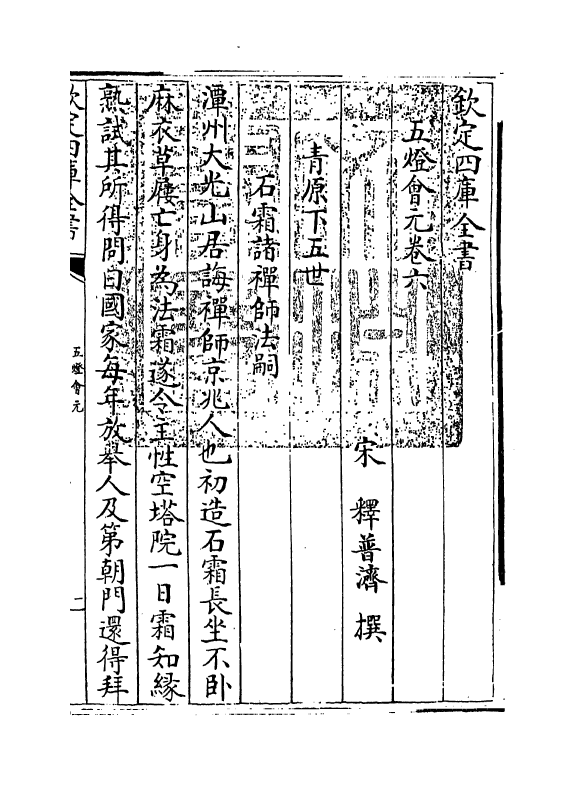 欽定四庫全書
五燈會元卷六
宋 釋普濟 撰
青原下五世
石霜諸禪師法嗣
潭州大光山居誨禪師京兆人也初造石霜長坐不卧
麻衣草屨亡身為法霜遂令主性空塔院一日霜知緣
熟試其所得問曰國家每年放舉人及第朝門還得拜
欽定四庫全書
五燈會元